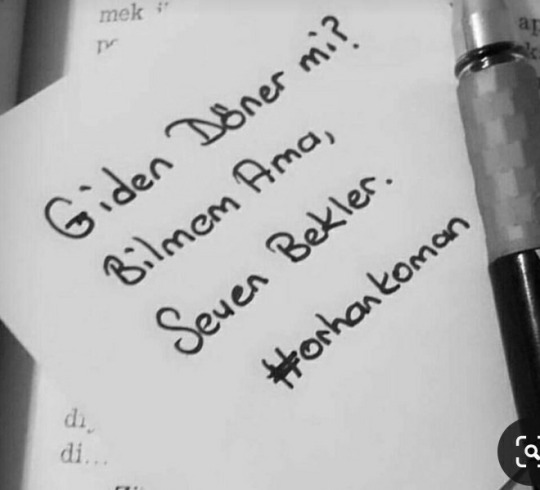 mek
Giden Döner mi?
Bilmem Ama,
Seven Bekler.
#orhankoman
di...